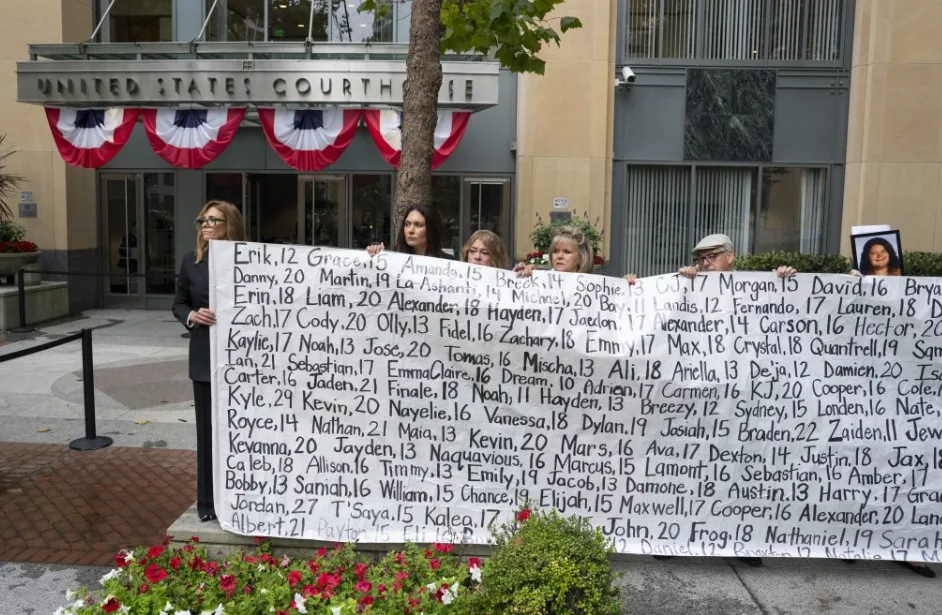 UNITED STATES COURTHOUSE
Erik, 12 Grace, 15 Amanda, 15 Breck, 14 Sophie, 13 CJ, 17 Morgan, 15 David, 16 Brya
Danny, 20 Martin, 19 La-Ashanti, 14 Michael, 20 Bay, 11 Landis, 12 Fernando, 17 Lauren, 18 D
Erin, 18 Liam, 20 Alexander, 18 Hayden, 17 Jaedon, 17 Alexander, 14 Carson, 16 Hector, 20
Zach, 17 Cody, 20 Olly, 13 Fidel, 16 Zachary, 18 Emmy, 17 Max, 18 Crystal, 18 Quantrell, 19 Sam
Kaylie, 17 Noah, 13 Jose, 20 Tomas, 16 Mischa, 13 Ali, 18 Ariella, 13 Deja, 12 Damien, 20 Isa
Ian, 21 Sebastian, 17 EmmaClaire, 16 Dream, 10 Adrien, 17 Carmen, 16 KJ, 20 Cooper, 16 Cole,
Carter, 16 Jaden, 21 Finale, 18 Noah, 11 Hayden, 13 Breezy, 12 Sydney, 15 Londen, 16 Nate,
Kyle, 29 Kevin, 20 Nayelie, 16 Vanessa, 18 Dylan, 19 Josiah, 15 Braden, 22 Zaiden, 11 Jew
Royce, 14 Nathan, 21 Maia, 13 Kevin, 20 Mars, 16 Ava, 17 Dexton, 14 Justin, 18 Jax, 18
Kevanna, 20 Jayden, 13 Naquavious, 16 Marcus, 15 Lamont, 16 Sebastian, 16 Amber, 17
Caleb, 18 Allison, 16 Timmy, 13 Emily, 19 Jacob, 13 Damone, 18 Austin, 13 Harry, 17 Gra
Bobby, 13 Saniah, 16 William, 15 Chance, 19 Elijah, 15 Maxwell, 17 Cooper, 16 Alexander, 20 Lan
Jordan, 27 T'Saya, 15 Kalea, 17 John, 20 Frog, 18 Nathaniel, 19 Sarah
Albert, 21 Payton, 15 Eli Daniel, 12 Braxton, 12 Natalie, 17 M